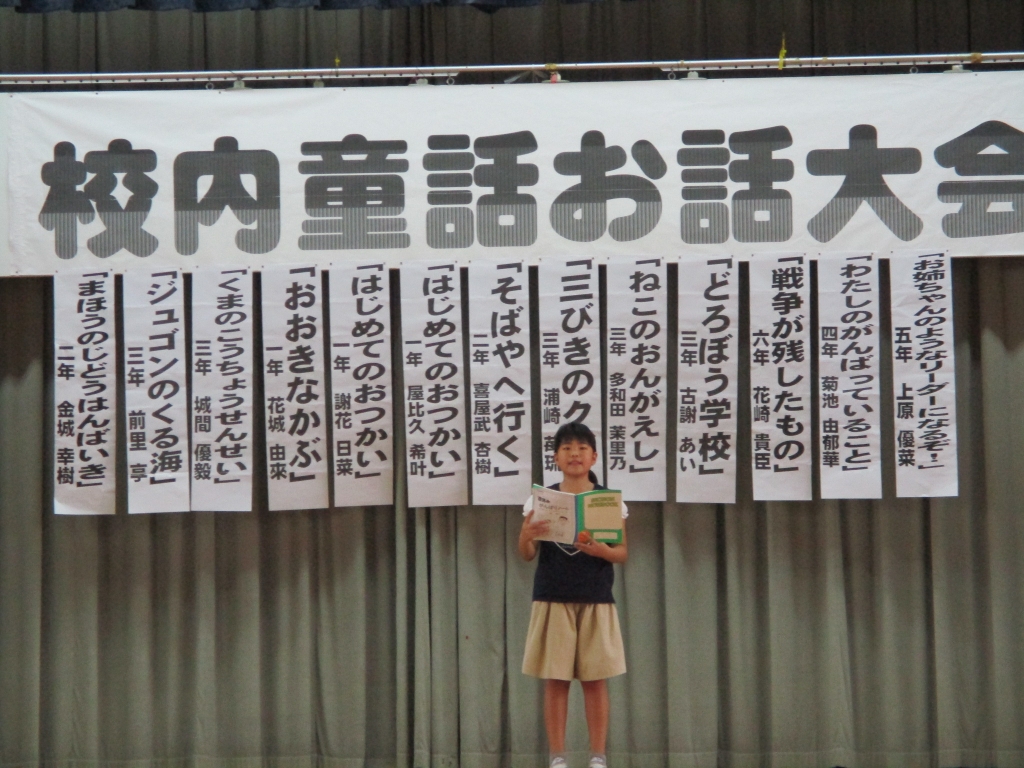 校内童話お話大会
「お姉ちゃんのようなリーダーになるぞ！」
五年 上原 優菜
「わたしのがんばっていること」
四年 菊池 由郁華
「戦争が残したもの」
六年 花崎 貴臣
「どろぼう学校」
三年 古謝 あい
「ねこのおんがえし」
三年 多和田 茉里乃
「三びきのク
三年 浦崎
「そばやへ行く」
二年 喜屋武 杏樹
「はじめてのおつかい」
一年 屋比久 希叶
「はじめてのおつかい」
一年 謝花 日菜
「おおきなかぶ」
一年 花城 由來
「くまのこうちょうせんせい」
三年 城間 優毅
「ジュゴンのくる海」
三年 前里 亨
「まほうのじどうはんばいき」
二年 金城 幸樹